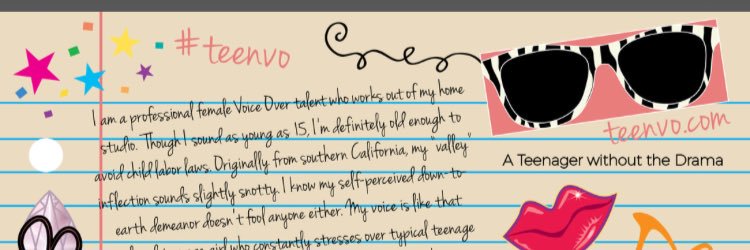 #teenvo
I am a professional female Voice Over talent who works out of my home
studio. Though I sound as young as 15, I'm definitely old enough to
avoid child labor laws. Originally from southern California, my "valley"
inflection sounds slightly snotty. I know my self-perceived down-to-
earth demeanor doesn't fool anyone either. My voice is like that
girl who constantly stresses over typical teenage
teenvo.com
A Teenager without the Drama